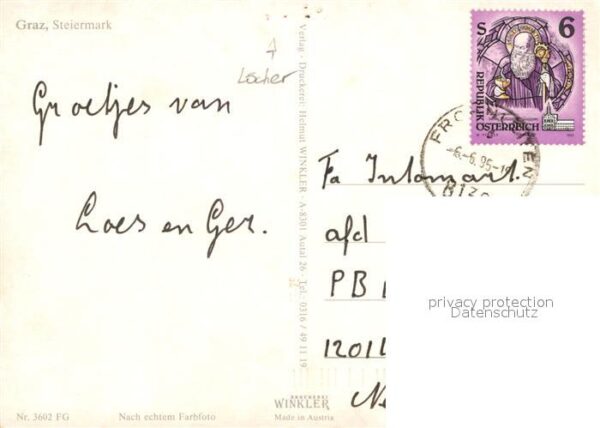 Graz, Steiermark
A
Löcher
Groetjes van
Loes en Ger.
Verlag + Druckerei: Helmut WINKLER · A-8301 Autal 26 · Tel.: 0316 / 49 11 19
S 6
REPUBLIK
ÖSTERREICH
FROHNLEITEN
-6.-6.95-1
8130
Fa Intomart.
afd
PB
1201
privacy protection
Datenschutz
Nr. 3602 FG
Nach echtem Farbfoto
DRUCKEREI
WINKLER
Made in Austria